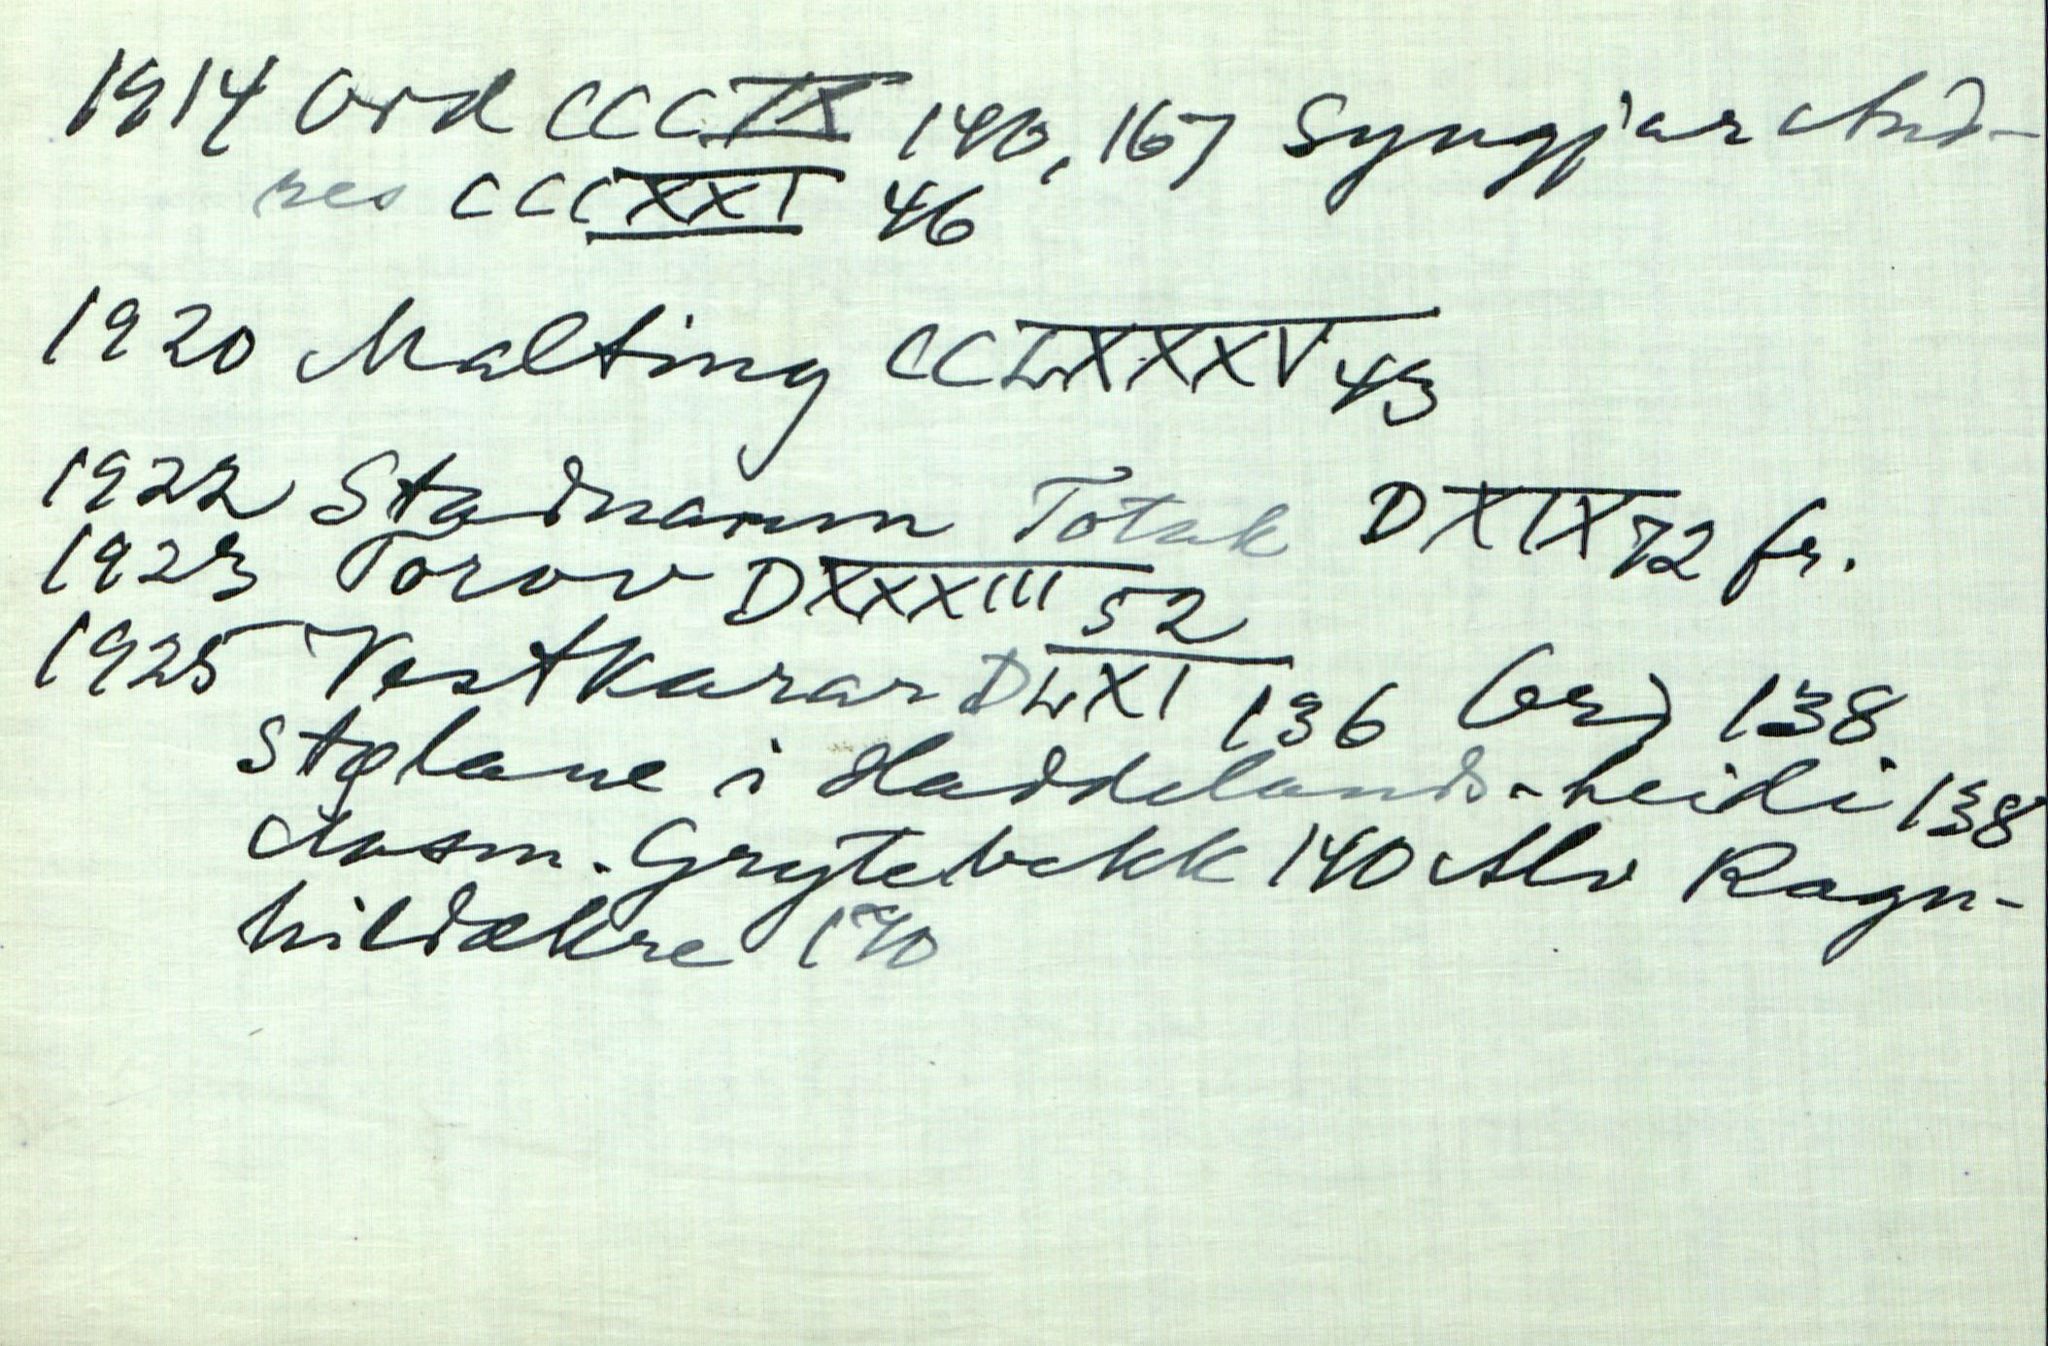 1914 Ord CCCIX 140, 167 Syngjar And-
res CCCXXI 46
1920 Malting CCLXXXV 43
1922 Stadnamn Totak DXIX 72 fr.
1923 Torov DXXXIII 52
1925 Vestkarar DLXI 136 (er) 138
Stølane i Haddelands-heidi 138
Aasm. Grytebekk 140 Alv Ragn-
hildækre 140